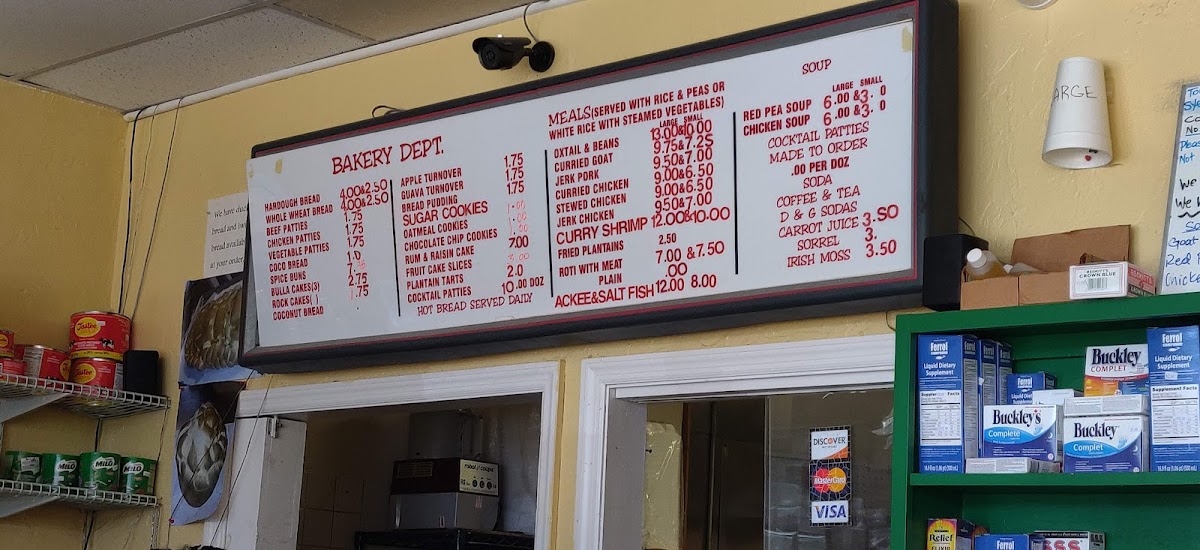 BAKERY DEPT.
HARDOUGH BREAD 4.00&2.50
WHOLE WHEAT BREAD 4.00&2.50
BEEF PATTIES 1.75
CHICKEN PATTIES 1.75
VEGETABLE PATTIES 1.75
COCO BREAD
SPICE BUNS
BULLA CAKES(3) 2.75
ROCK CAKES( )
COCONUT BREAD .75
APPLE TURNOVER 1.75
GUAVA TURNOVER 1.75
BREAD PUDDING 1.75
SUGAR COOKIES
OATMEAL COOKIES
CHOCOLATE CHIP COOKIES
RUM & RAISIN CAKE 7.00
FRUIT CAKE SLICES 3.00
PLANTAIN TARTS 2.0
COCKTAIL PATTIES 10.00 DOZ
HOT BREAD SERVED DAILY
MEALS(SERVED WITH RICE & PEAS OR
WHITE RICE WITH STEAMED VEGETABLES)
LARGE SMALL
OXTAIL & BEANS 13.00&10.00
CURRIED GOAT 9.75&7.25
JERK PORK 9.50&7.00
CURRIED CHICKEN 9.00&6.50
STEWED CHICKEN 9.00&6.50
JERK CHICKEN 9.50&7.00
CURRY SHRIMP 12.00&10.00
FRIED PLANTAINS 2.50
ROTI WITH MEAT 7.00 &7.50
PLAIN .00
ACKEE&SALT FISH 12.00 8.00
SOUP
LARGE SMALL
RED PEA SOUP 6.00 &3. 0
CHICKEN SOUP 6.00 &3. 0
COCKTAIL PATTIES
MADE TO ORDER
.00 PER DOZ
SODA
COFFEE & TEA
D & G SODAS
CARROT JUICE 3.50
SORREL 3.
IRISH MOSS 3.50
ARGE
We have
bread and
bread available
at your order
Tastee
Tastee
MILO
MILO
MILO
DISCOVER
MasterCard
VISA
CROWN BLUE
Ferrol
Liquid Dietary
Supplement
Buckley
COMPLET
Ferrol
Liquid Dietary
Supplement
Ferrol
Buckley's
Complete
Buckley
Complet
Relief
ELIXIR
Ferrol
Please
Not
We
We
Goat
Red
Chicken